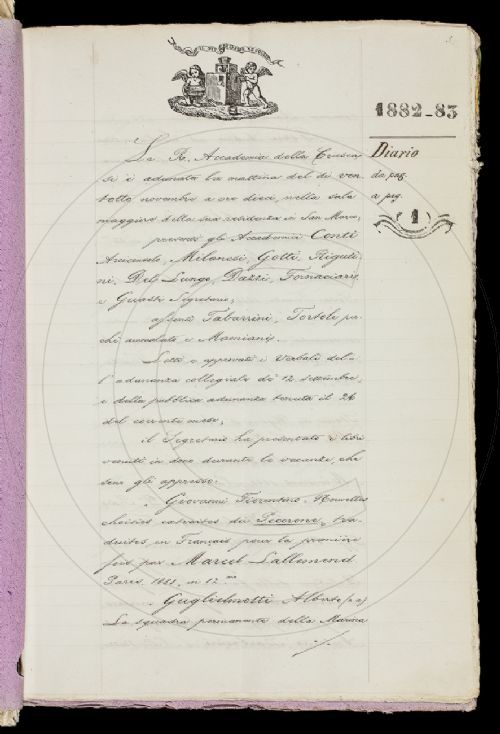 1882-83
Diario
da pag.
a pag.
1
La R. Accademia della Crusca
si è adunata la mattina del dì ven
totto novembre a ore dieci, nella sala
maggiore della sua residenza in San Marco,
presenti gli Accademici Conti
Arciconsolo, Milanesi, Gotti, Riguti-
ni, Del Lungo, Dazzi, Fornaciari,
e Guasti Segretario;
assenti Tabarrini, Tortoli per-
chè ammalato e Mamiani.
Letti e approvati i Verbali del-
l'adunanza collegiale de' 12 settembre,
e della pubblica adunanza tenuta il 26
del corrente mese,
il Segretario ha presentato i libri
venuti in dono durante le vacanze, che
sono gli appresso:
Giovanni Fiorentino. Nouvelles
choisies extraites du Pecorone, tra
duites en Français pour la première
fois par Marcel Lallemend
Paris, 1881. in 12.mo
Guglielmotti Alberto (P.)
La squadra permanente della Marina